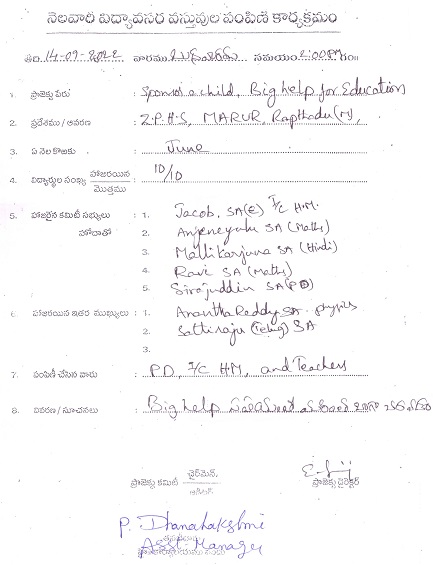 నెలవారీ విద్యావసర వస్తువుల పంపిణీ కార్యక్రమం
తేది: 14-09-2022 వారము బుధవారము సమయం 2:00PM గం॥
1. ప్రాజెక్టు పేరు : Sponsor a child, Big help for Education
2. ప్రదేశము / ఆవరణ : Z.P.H.S, MARUR, Rapthadu(M),
3. ఏ నెల కొఱకు : June
4. విద్యార్థుల సంఖ్య హాజరయిన / మొత్తము : 10/10
5. హాజరైన కమిటీ సభ్యులు : 1. Jacob, SA(E) I/C H.M.
హోదాతో 2. Anjeneyulu SA (Maths)
3. Mallikarjuna SA (Hindi)
4. Ravi SA (Maths)
5. Sirajuddin SA(PD)
6. హాజరయిన ఇతర ముఖ్యులు : 1. Anantha Reddy SA. physics
2. Sattiraju (Telug) SA
3.
7. పంపిణీ చేసిన వారు : PD, I/C HM, and Teachers
8. వివరణ / సూచనలు : Big help
ప్రాజెక్టు కమిటీ ఛైర్మెన్,
ప్రాజెక్టు డైరెక్టర్
P. Dhanalakshmi
Asst. Manager